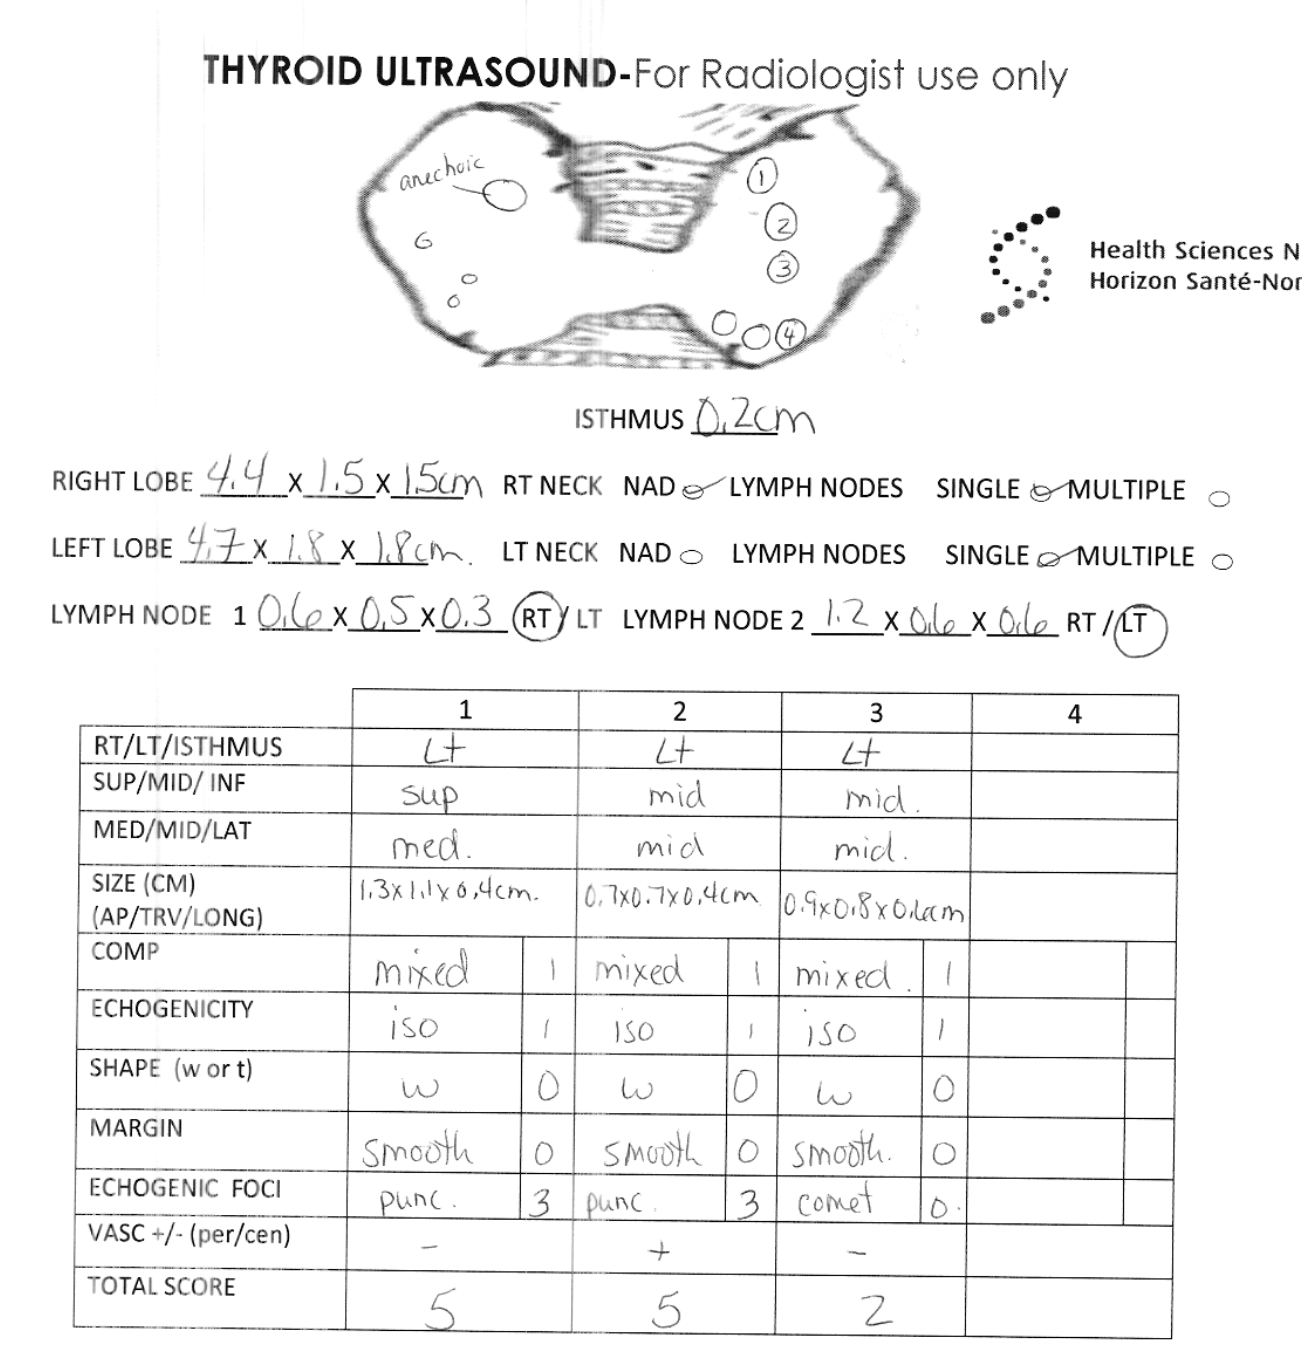 THYROID ULTRASOUND-For Radiologist use only
anechoic
1
2
3
4
Health Sciences N
Horizon Santé-Nor
ISTHMUS 0.2cm
RIGHT LOBE 4.4 X 1.5 X 1.5cm RT NECK NAD LYMPH NODES SINGLE MULTIPLE
LEFT LOBE 4.7 X 1.8 X 1.8cm. LT NECK NAD LYMPH NODES SINGLE MULTIPLE
LYMPH NODE 1 0.6 X 0.5 X 0.3 RT / LT LYMPH NODE 2 1.2 X 0.6 X 0.6 RT / LT
1 2 3 4
RT/LT/ISTHMUS Lt Lt Lt
SUP/MID/ INF sup mid mid.
MED/MID/LAT med. mid mid.
SIZE (CM) 1.3x1.1x0.4cm. 0.7x0.7x0.4cm 0.9x0.8x0.6cm
(AP/TRV/LONG)
COMP mixed 1 mixed 1 mixed. 1
ECHOGENICITY iso 1 iso 1 iso 1
SHAPE (w or t) w 0 w 0 w 0
MARGIN smooth 0 smooth 0 smooth. 0
ECHOGENIC FOCI punc. 3 punc. 3 comet 0.
VASC +/- (per/cen) - + -
TOTAL SCORE 5 5 2